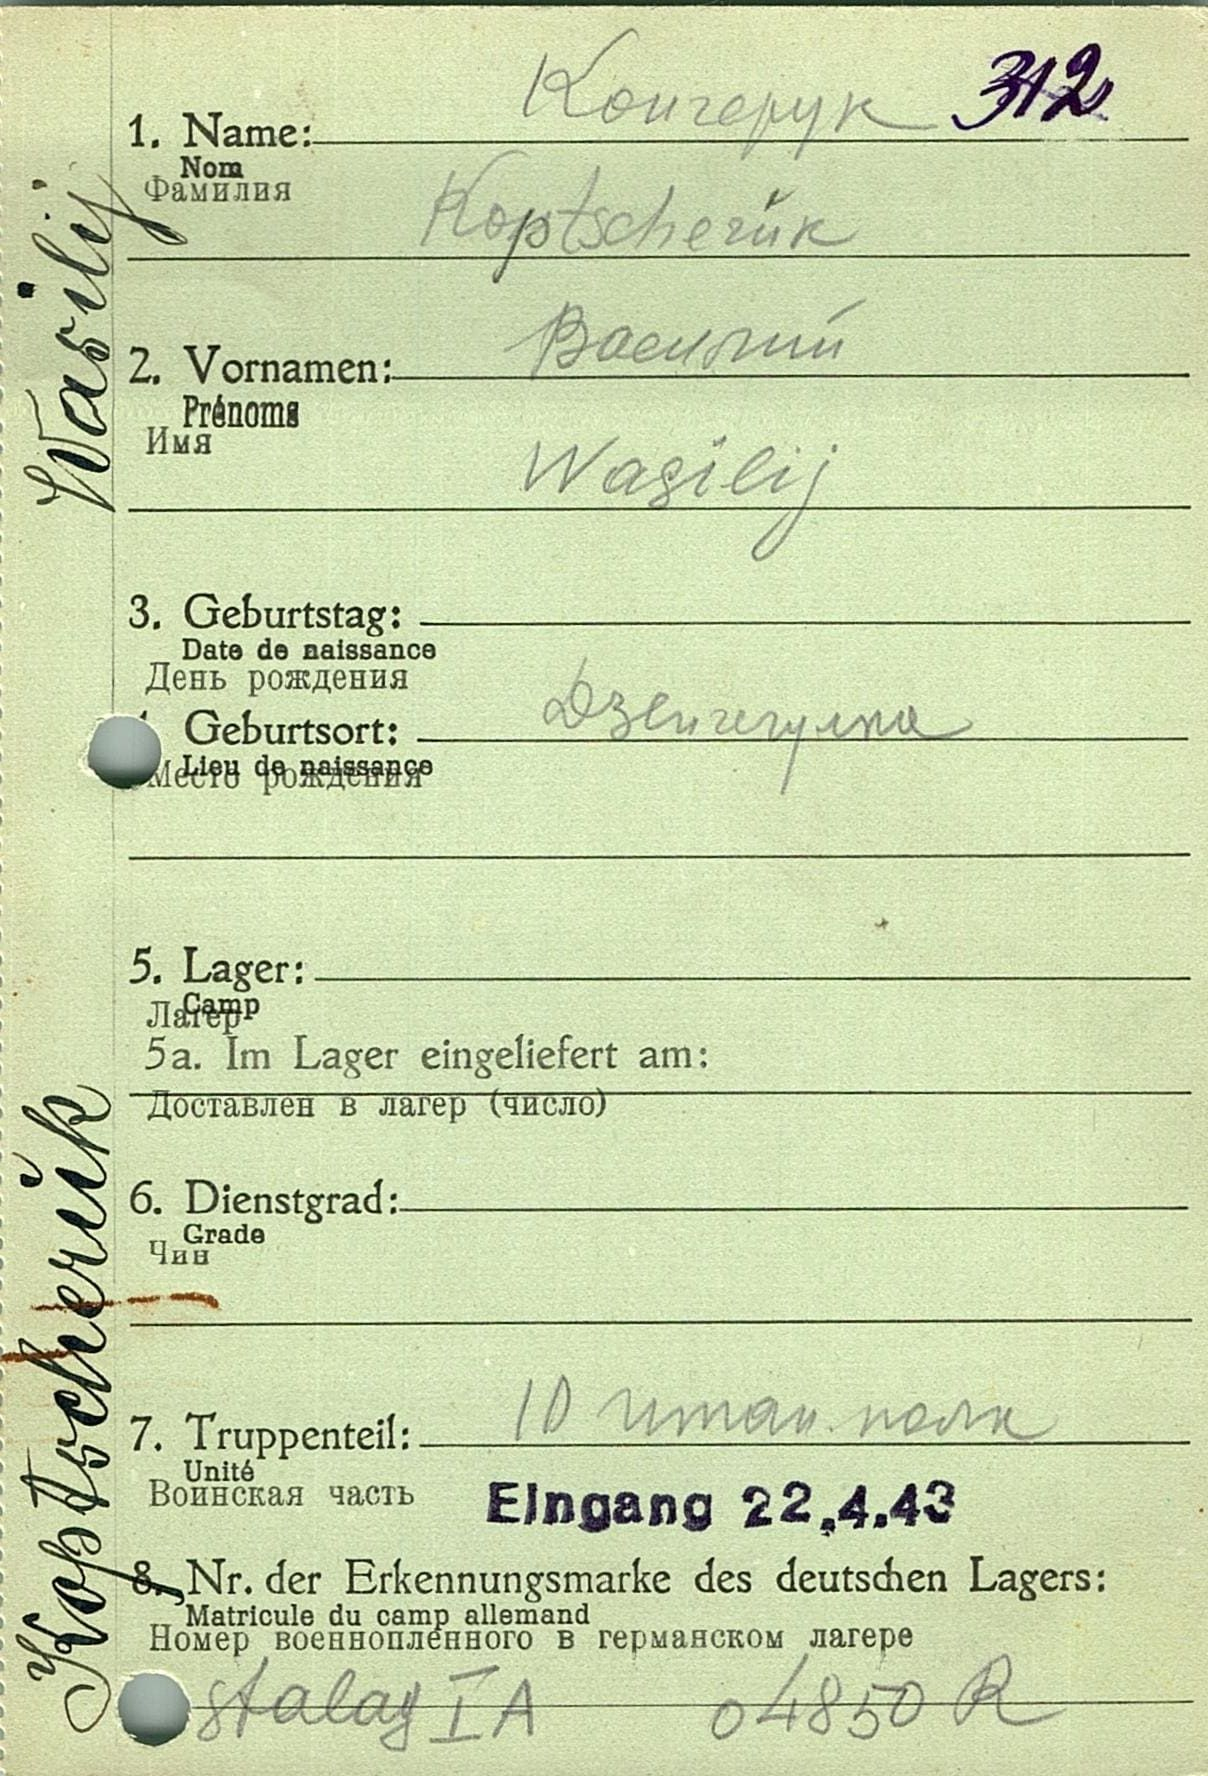 312
1. Name: Копчерук
Nom
Фамилия
Koptscherŭk
2. Vornamen: Василий
Prénoms
Имя
Wasilij
3. Geburtstag:
Date de naissance
День рождения
Geburtsort:
Lieu de naissance
Место рождения
5. Lager:
Camp
Лагер
5a. Im Lager eingeliefert am:
Доставлен в лагер (число)
6. Dienstgrad:
Grade
Чин
7. Truppenteil: 10 полк
Unité
Воинская часть
Eingang 22.4.43
8. Nr. der Erkennungsmarke des deutschen Lagers:
Matricule du camp allemand
Номер военнопленного в германском лагере
Stalag I A 04850 R
Koptscherŭk Wasilij